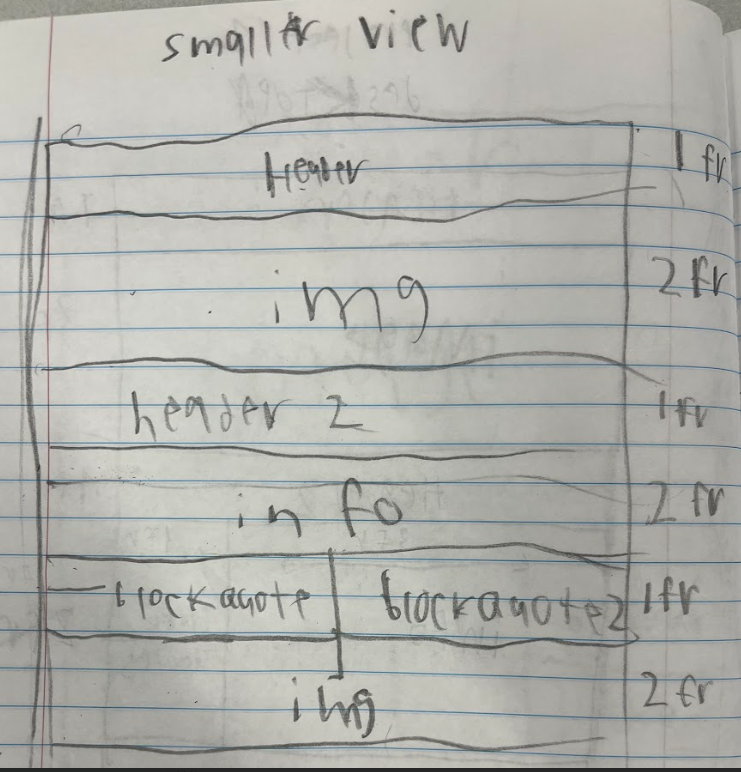 smaller view
Header 1 fr
img 2 fr
header 2 1 fr
info 2 fr
blockquote blockquote2 1 fr
img 2 fr